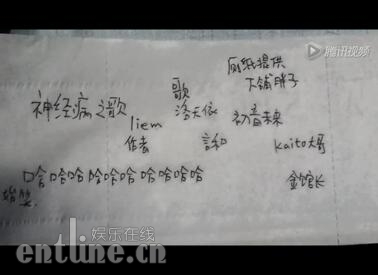 腾讯视频
厕纸提供
下铺胖子
歌
神经病之歌
洛天依
初音未来
liem
作者
言和
kaito大哥
哈哈哈哈哈哈哈哈哈哈
金馆长
娱乐在线
entline.cn